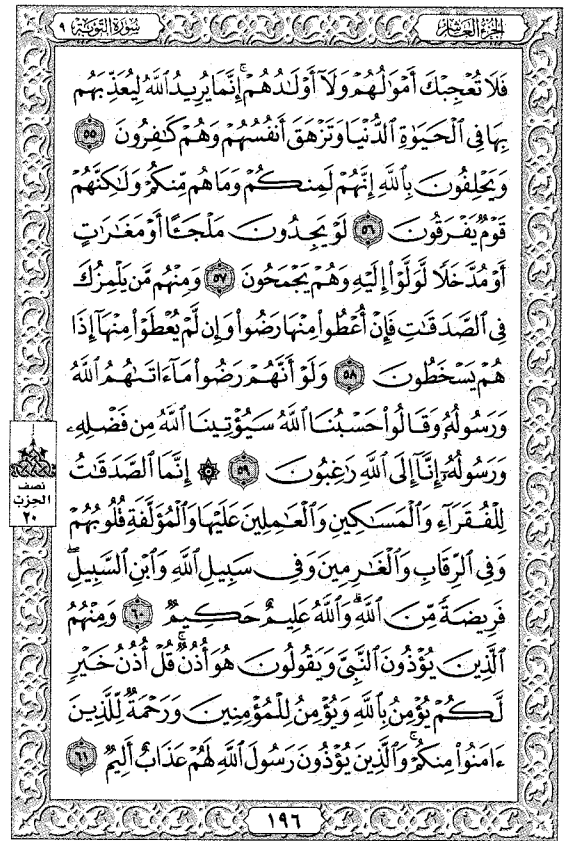 سُورَةُ التَّوْبَةِ ٩
الجُزءُ العَاشِرُ
فَلَا تُعْجِبْكَ أَمْوَٰلُهُمْ وَلَآ أَوْلَٰدُهُمْ ۚ إِنَّمَا يُرِيدُ ٱللَّهُ لِيُعَذِّبَهُم
بِهَا فِى ٱلْحَيَوٰةِ ٱلدُّنْيَا وَتَزْهَقَ أَنفُسُهُمْ وَهُمْ كَٰفِرُونَ ٥٥
وَيَحْلِفُونَ بِٱللَّهِ إِنَّهُمْ لَمِنكُمْ وَمَا هُم مِّنكُمْ وَلَٰكِنَّهُمْ
قَوْمٌ يَفْرَقُونَ ٥٦ لَوْ يَجِدُونَ مَلْجَـًٔا أَوْ مَغَٰرَٰتٍ
أَوْ مُدَّخَلًا لَّوَلَّوْا۟ إِلَيْهِ وَهُمْ يَجْمَحُونَ ٥٧ وَمِنْهُم مَّن يَلْمِزُكَ
فِى ٱلصَّدَقَٰتِ فَإِنْ أُعْطُوا۟ مِنْهَا رَضُوا۟ وَإِن لَّمْ يُعْطَوْا۟ مِنْهَآ إِذَا
هُمْ يَسْخَطُونَ ٥٨ وَلَوْ أَنَّهُمْ رَضُوا۟ مَآ ءَاتَىٰهُمُ ٱللَّهُ
وَرَسُولُهُۥ وَقَالُوا۟ حَسْبُنَا ٱللَّهُ سَيُؤْتِينَا ٱللَّهُ مِن فَضْلِهِۦ
وَرَسُولُهُۥٓ إِنَّآ إِلَى ٱللَّهِ رَٰغِبُونَ ٥٩ ۞ إِنَّمَا ٱلصَّدَقَٰتُ
لِلْفُقَرَآءِ وَٱلْمَسَٰكِينِ وَٱلْعَٰمِلِينَ عَلَيْهَا وَٱلْمُؤَلَّفَةِ قُلُوبُهُمْ
وَفِى ٱلرِّقَابِ وَٱلْغَٰرِمِينَ وَفِى سَبِيلِ ٱللَّهِ وَٱبْنِ ٱلسَّبِيلِ ۖ
فَرِيضَةً مِّنَ ٱللَّهِ ۗ وَٱللَّهُ عَلِيمٌ حَكِيمٌ ٦٠ وَمِنْهُمُ
ٱلَّذِينَ يُؤْذُونَ ٱلنَّبِىَّ وَيَقُولُونَ هُوَ أُذُنٌ ۚ قُلْ أُذُنُ خَيْرٍ
لَّكُمْ يُؤْمِنُ بِٱللَّهِ وَيُؤْمِنُ لِلْمُؤْمِنِينَ وَرَحْمَةٌ لِّلَّذِينَ
ءَامَنُوا۟ مِنكُمْ ۚ وَٱلَّذِينَ يُؤْذُونَ رَسُولَ ٱللَّهِ لَهُمْ عَذَابٌ أَلِيمٌ ٦١
نصف
الحزب
٢٠
١٩٦